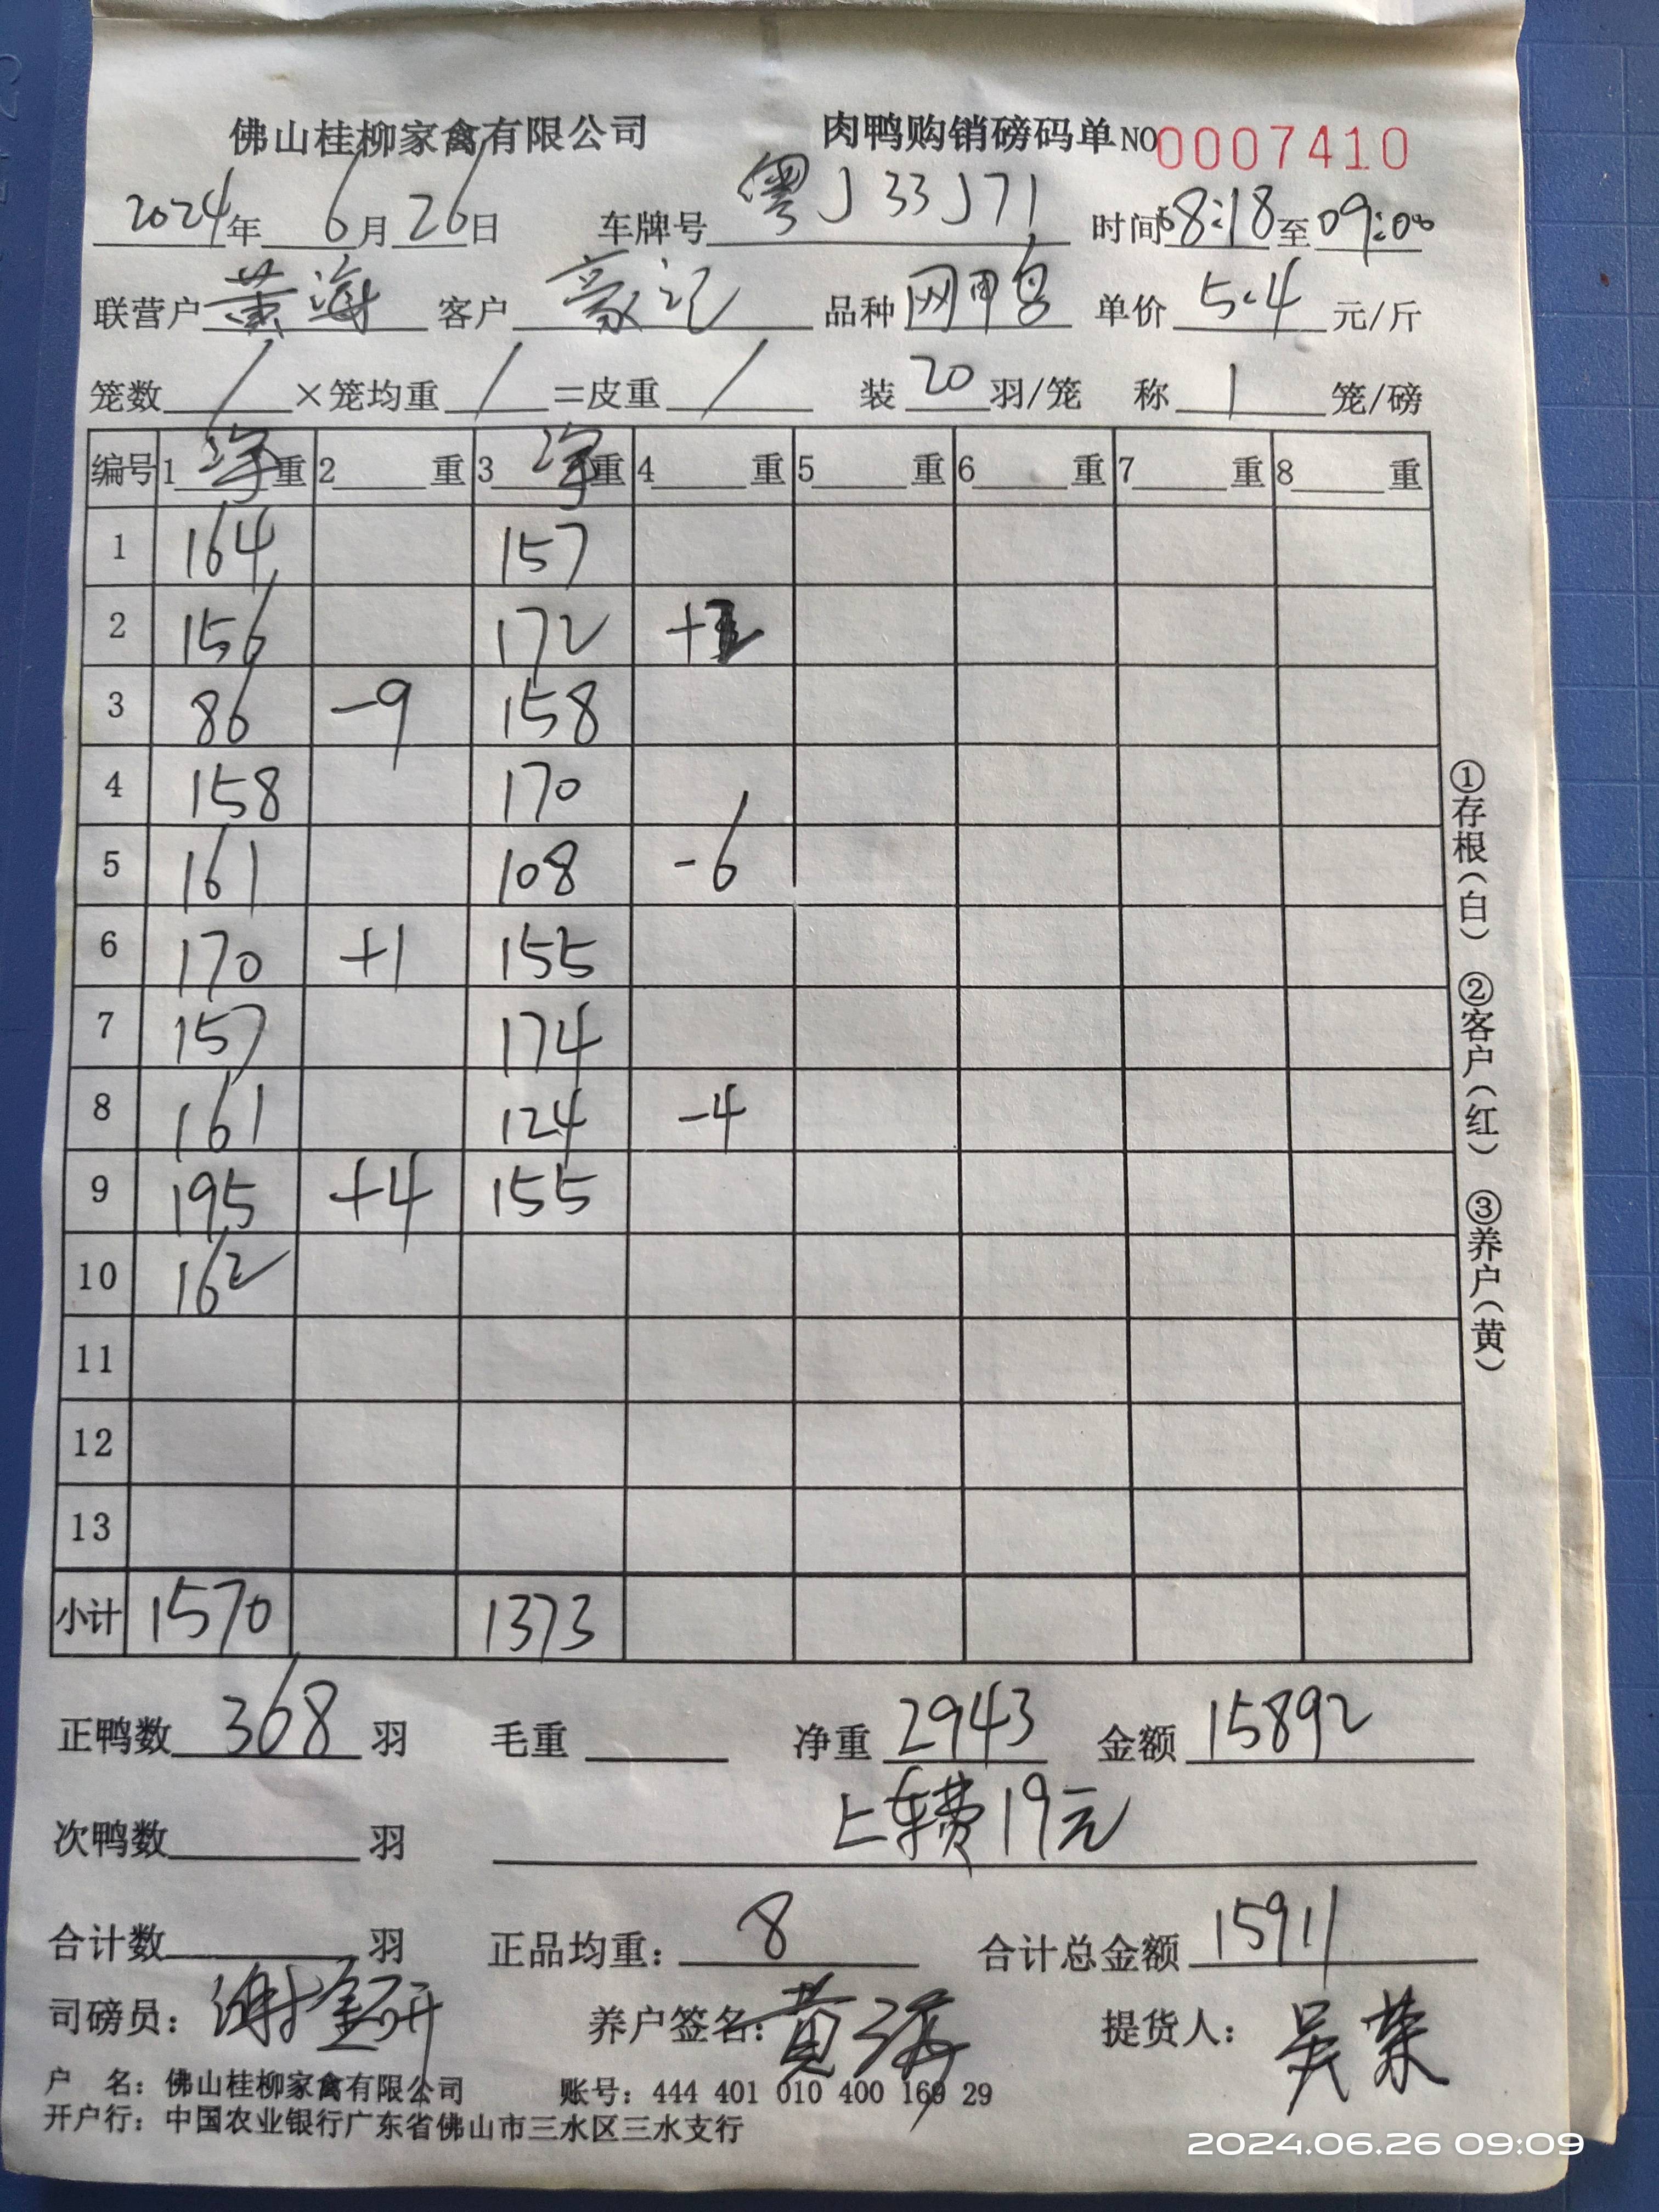 佛山桂柳家禽有限公司 肉鸭购销磅码单 NO 0007410
2024年 6月26日 车牌号 粤J33J71 时间 08:18至09:00
联营户 黄海 客户 豪记 品种 网鸭 单价 5.4 元/斤
笼数 / ×笼均重 / =皮重 / 装 20 羽/笼 称 1 笼/磅
编号 1 净 重 2 重 3 净 重 4 重 5 重 6 重 7 重 8 重
1 164 157
2 156 172
3 86 -9 158
4 158 170
5 161 108 -6
6 170 +1 155
7 157 174
8 161 124 -4
9 195 +4 155
10 162
11
12
13
小计 1570 1373
正鸭数 368 羽 毛重 净重 2943 金额 15892
次鸭数 羽 上车费19元
合计数 羽 正品均重: 8 合计总金额 15911
司磅员: 养户签名: 黄海 提货人: 吴荣
户 名: 佛山桂柳家禽有限公司 账号: 444 401 010 400 169 29
开户行: 中国农业银行广东省佛山市三水区三水支行
①存根(白) ②客户(红) ③养户(黄)
2024.06.26 09:09